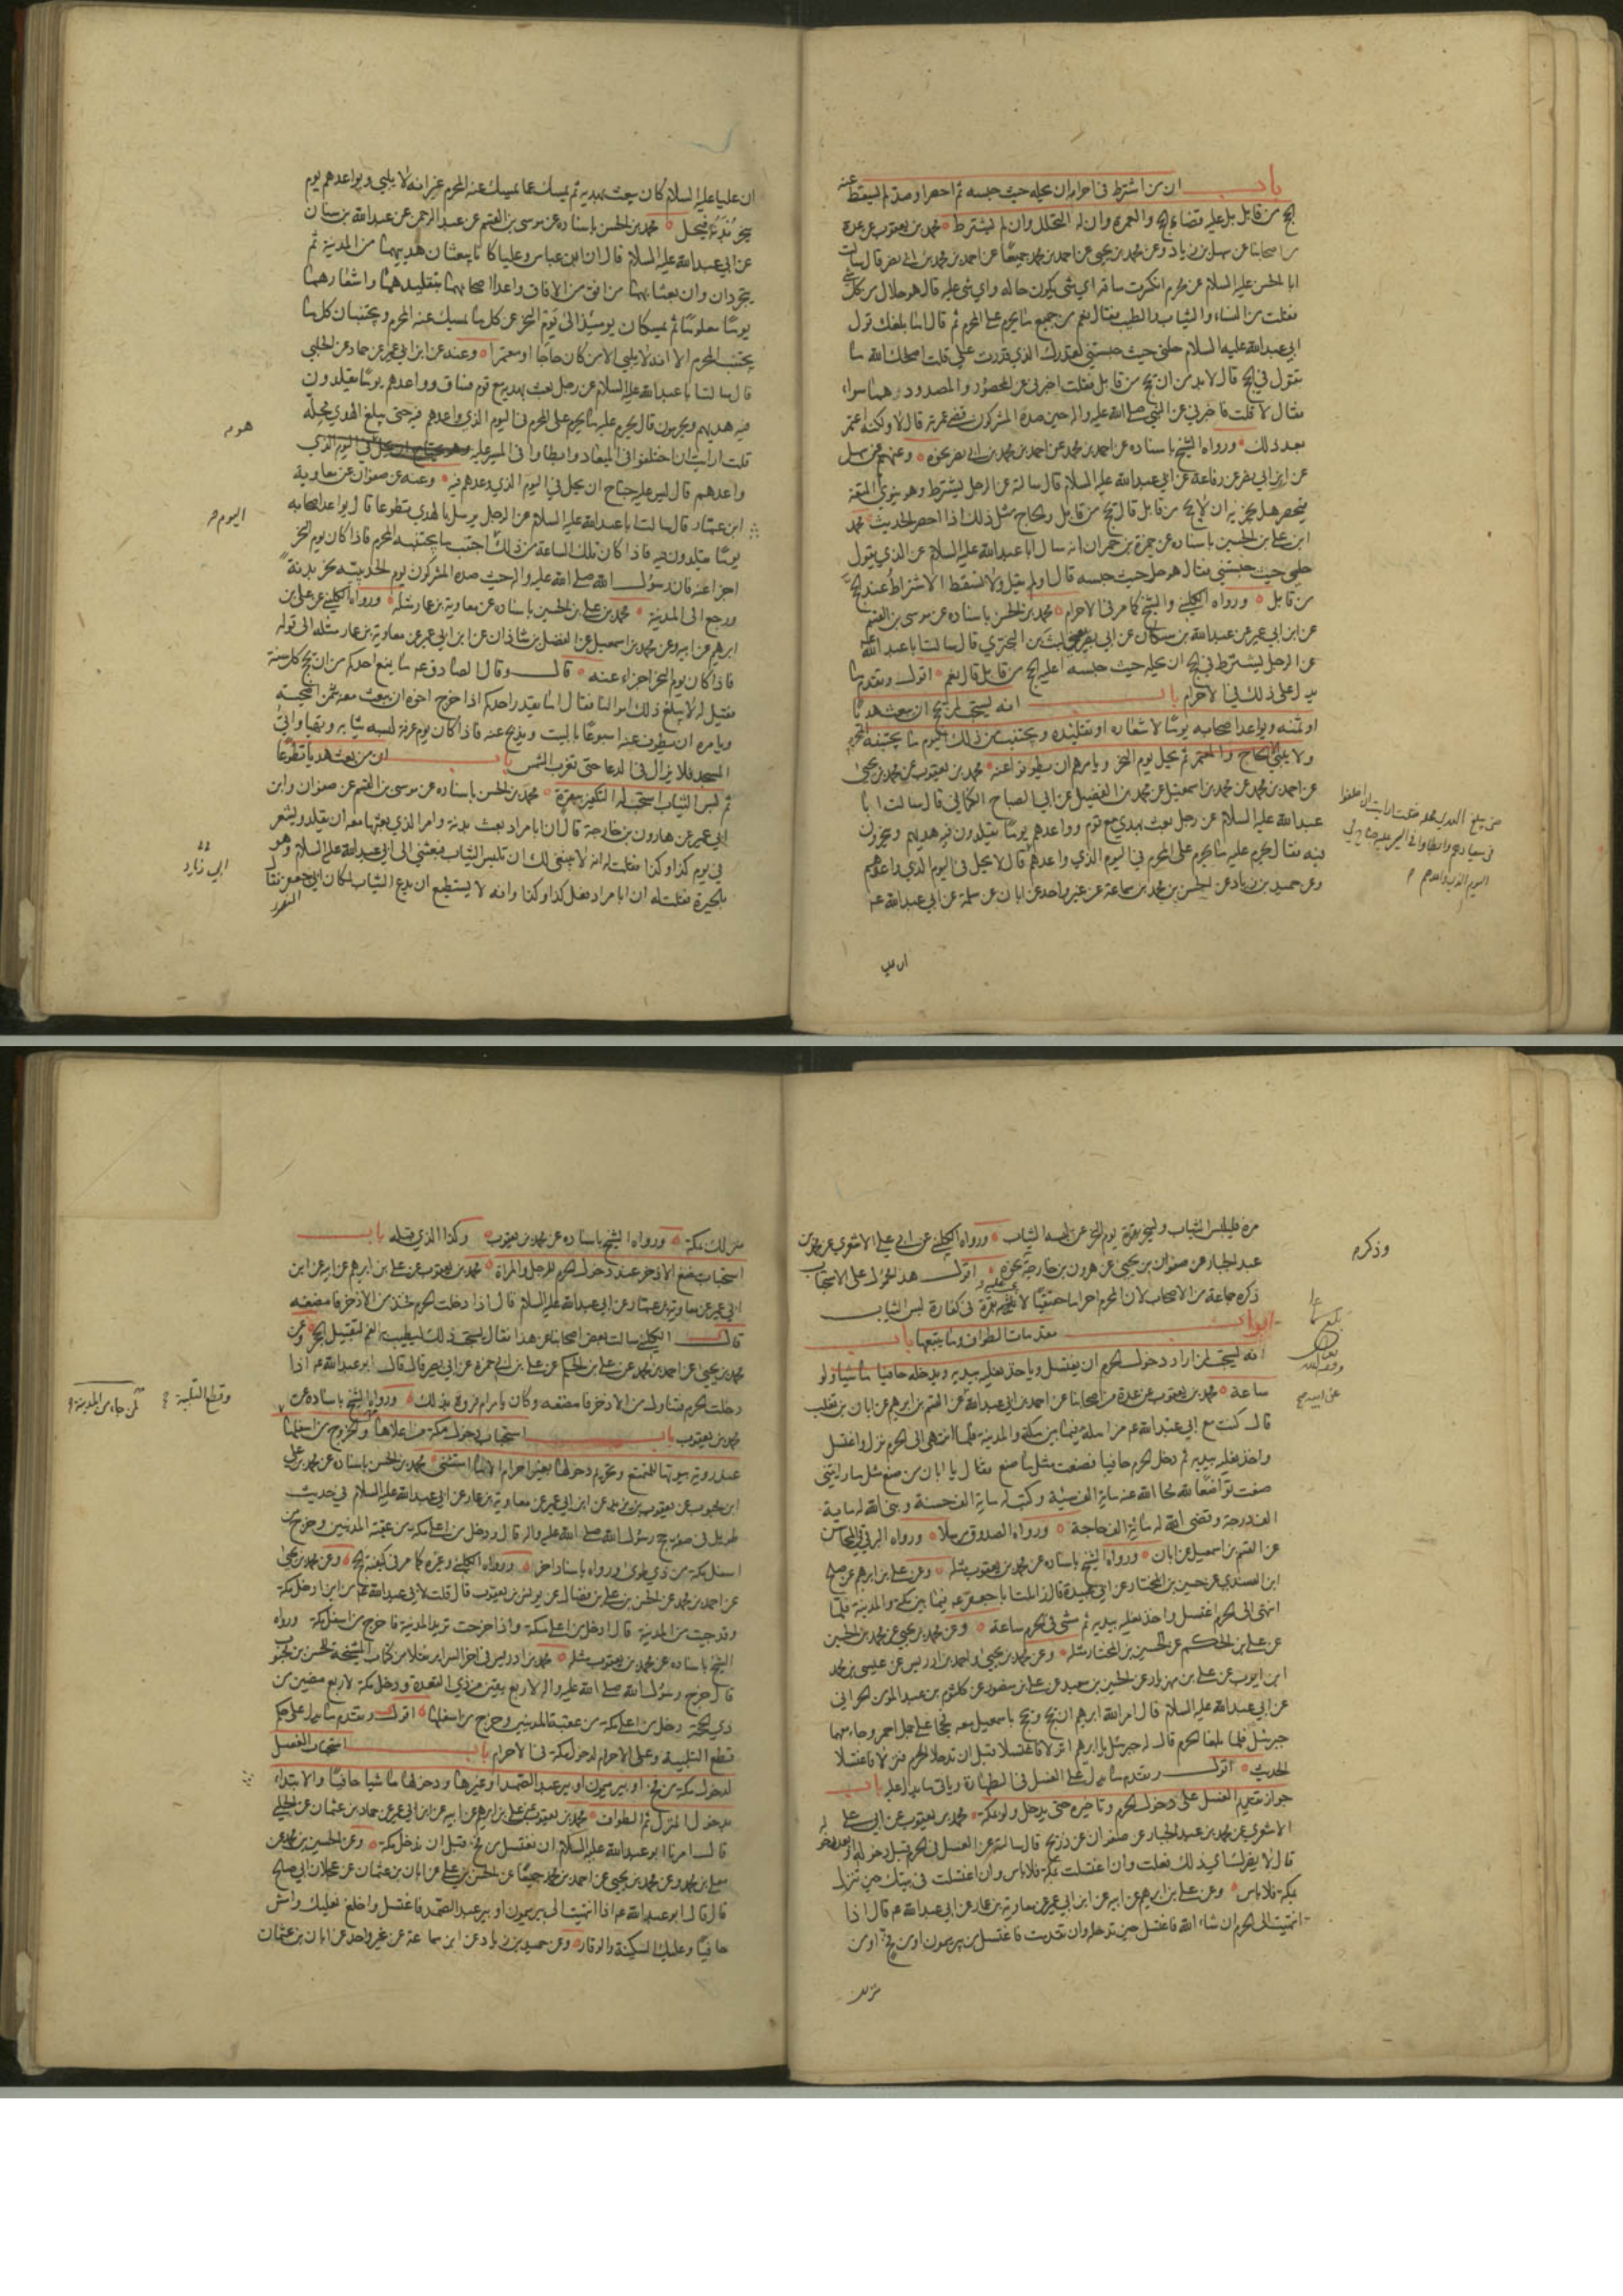 باب ان من اشترط في احرامه ان يحله حيث حبسه ثم احصر او صد لم يسقط عنه
الحج من قابل بل عليه قضاء الحج والعمرة وان له التحلل وان لم يشترط محمد بن يعقوب عن عدة
من اصحابنا عن سهل بن زياد وعن محمد بن يحيى عن احمد بن محمد جميعا عن احمد بن محمد بن ابي نصر قال سالت
ابا الحسن عليه السلام عن محرم انكسرت ساقه اي شئ يكون حاله واي شئ عليه قال هو حلال من كل شئ
فقلت من النساء والثياب والطيب فقال نعم من جميع ما يحرم على المحرم ثم قال اما بلغك قول
ابي عبد الله عليه السلام حلني حيث حبستني لقدرك الذي قدرت علي قلت اصلحك الله ما
تقول في الحج قال لا بد من ان يحج من قابل فقلت اخبرني عن المحصور والمصدود هما سواء
فقال لا قلت فاخبرني عن النبي صلى الله عليه واله حين صده المشركون قضى عمرته قال لا ولكنه اعتمر
بعد ذلك ورواه الشيخ باسناده عن احمد بن محمد عن احمد بن محمد بن ابي نصر نحوه وعنهم عن سهل
عن ابن ابي نصر عن رفاعة عن ابي عبد الله عليه السلام قال سالته عن الرجل يشترط وهو ينوي المتعة
فيحصر هل يجزيه ان لا يحج من قابل قال يحج من قابل والحاج مثل ذلك اذا احصر الحديث محمد
ابن علي بن الحسين باسناده عن حمزة بن حمران انه سال ابا عبد الله عليه السلام عن الذي يقول
حلني حيث حبستني فقال هو حل حيث حبسه قال او لم يقل ولا تسقط الاشتراط عنه الحج
من قابل ورواه الكليني والشيخ كما مر في الاحرام محمد بن الحسن باسناده عن موسى بن القسم
عن ابن ابي عمير عن عبد الله بن مسكان عن ابي بصير يعني ليث بن البختري قال سالت ابا عبد الله
عن الرجل يشترط في الحج ان يحله حيث حبسه اعليه الحج من قابل قال نعم اقول وتقدم ما
يدل على ذلك في الاحرام باب انه يستحب لمن لم يحج ان يبعث هديا
او ثمنه ويواعد اصحابه يوما لاشعاره او تقليده ويجتنب من ذلك اليوم ما يجتنبه المحرم
ولا يلبي الحاج والمعتمر ثم يحل يوم النحر ويامرهم ان يطوفوا عنه محمد بن يعقوب عن محمد بن يحيى
عن احمد بن محمد عن محمد بن اسمعيل عن محمد بن الفضيل عن ابي الصباح الكناني قال سالت ابا
عبد الله عليه السلام عن رجل بعث بهدي مع قوم وواعدهم يوما يقلدون فيه هديهم ويحرمون
فيه فقال يحرم عليه ما يحرم على المحرم في اليوم الذي واعدهم قال لا يحل في اليوم الذي واعدهم
وعن حميد بن زياد عن الحسن بن محمد بن سماعة عن غير واحد عن ابان عن سلمة عن ابي عبد الله عم
حتى يبلغ الهدي محله قلت ارايت ان اختلفوا
في ميعادهم وابطاوا في السير عليه جناح ان يحل في
اليوم الذي واعدهم
ان عليا عليه السلام كان يبعث بهديه ثم يمسك عما يمسك عنه المحرم غير انه لا يلبي ويواعدهم يوم
ينحر بدنه فيحل محمد بن الحسن باسناده عن موسى بن القسم عن عبد الرحمن عن عبد الله بن سنان
عن ابي عبد الله عليه السلام قال ان ابن عباس وعليا كانا يبعثان هديهما من المدينة ثم
يتجردان وان بعثا بهما من افق من الافاق واعدا اصحابهما بتقليدهما واشعارهما
يوما معلوما ثم يمسكان يومئذ الى يوم النحر عن كل ما يمسك عنه المحرم ويجتنبان كل ما
يجتنب المحرم الا انه لا يلبي الا من كان حاجا او معتمرا وعنه عن ابن ابي عمير عن حماد عن الحلبي
قال سالت ابا عبد الله عليه السلام عن رجل بعث بهديه مع قوم فساق وواعدهم يوما يقلدون
فيه هديهم ويحرمون قال يحرم عليه ما يحرم على المحرم في اليوم الذي واعدهم فيه حتى يبلغ الهدي محله
قلت ارايت ان اختلفوا في الميعاد وابطاوا في المسير عليه وهو يحتاج ان يحل في اليوم الذي
هو
واعدهم قال ليس عليه جناح ان يحل في اليوم الذي وعدهم فيه وعنه عن صفوان عن معاوية
ابن عمار قال سالت ابا عبد الله عليه السلام عن الرجل يرسل بالهدي تطوعا قال يواعد اصحابه
اليوم
يوما يقلدون فيه فاذا كان تلك الساعة من ذلك اجتنب ما يجتنبه المحرم فاذا كان يوم النحر
اجزا عنه فان رسول الله صلى الله عليه واله حيث صده المشركون يوم الحديبية نحر بدنة
ورجع الى المدينة محمد بن علي بن الحسين باسناده عن معاوية بن عمار مثله ورواه الكليني عن علي بن
ابرهيم عن ابيه وعن محمد بن اسمعيل عن الفضل بن شاذان عن ابن ابي عمير عن معاوية بن عمار مثله الى قوله
فاذا كان يوم النحر اجزا عنه قال وقال الصادق عم ما يمنع احدكم من ان يحج كل سنة
فقيل له لا يبلغ ذلك اموالنا فقال اما يقدر احدكم اذا خرج اخوه ان يبعث معه بثمن اضحية
ويامره ان يطوف عنه اسبوعا بالبيت ويذبح عنه فاذا كان يوم عرفة لبس ثيابه وتهيا واتى
المسجد فلا يزال في الدعا حتى تغرب الشمس باب ان من بعث هديا تطوعا
ثم لبس الثياب استحب له التكفير ببقرة محمد بن الحسن باسناده عن موسى بن القسم عن صفوان وابن
ابي عمير عن هارون بن خارجة قال ان ابا مراد بعث بدنة وامر الذي بعثها معه ان يقلد ويشعر
في يوم كذا وكذا فقلت له انه لا ينبغي لك ان تلبس الثياب فبعثني الى ابي عبد الله عليه السلام وهو
بالحيرة فقلت له ان ابا مراد فعل كذا وكذا وانه لا يستطيع ان يدع الثياب لمكان ابي جعفر فقال
ابي زياد
مره فليلبس الثياب ولينحر بقرة يوم النحر عن لبسه الثياب ورواه الكليني عن ابي علي الاشعري عن محمد بن
عبد الجبار عن صفوان بن يحيى عن هرون بن خارجة نحوه اقول هذا محمول على الاستحباب
وذكره
ذكره جماعة من الاصحاب لان المحرم احراما حقيقيا لا يلزمه بقرة في كفارة لبس الثياب
ابواب مقدمات الطواف وما يتبعها باب
انه يستحب لمن اراد دخول الحرم ان يغتسل وياخذ نعليه بيديه ويدخله حافيا ماشيا ولو
ساعة محمد بن يعقوب عن عدة من اصحابنا عن احمد بن ابي عبد الله عن القسم بن ابرهيم عن ابان بن تغلب
قال كنت مع ابي عبد الله عم مزامله فيما بين مكة والمدينة فلما انتهى الى الحرم نزل واغتسل
واخذ نعليه بيديه ثم دخل الحرم حافيا فصنعت مثل ما صنع فقال يا ابان من صنع مثل ما رايتني
صنعت تواضعا لله محا الله عنه ماية الف سيئة وكتب له ماية الف حسنة وبنى الله له ماية
الف درجة وقضى الله له ماية الف حاجة ورواه الصدوق مرسلا ورواه البرقي في المحاسن
عن القسم بن اسمعيل عن ابان ورواه الشيخ باسناده عن محمد بن يعقوب مثله وعن علي بن ابرهيم عن صالح
ابن السندي عن حسين بن المختار عن ابي عبيدة قال زاملت ابا جعفر عم فيما بين مكة والمدينة فلما
انتهى الى الحرم اغتسل واخذ نعليه بيديه ثم مشى في الحرم ساعة وعن محمد بن يحيى عن محمد بن الحسين
عن علي بن الحكم عن الحسين بن المختار مثله وعن محمد بن يحيى واحمد بن ادريس عن عيسى بن محمد
ابن ايوب عن علي بن مهزيار عن الحسين بن سعيد عن علي بن منصور عن كلثوم بن عبد المومن الحراني
عن ابي عبد الله عليه السلام قال امر الله ابرهيم ان يحج ويحج باسمعيل معه فحجا على جمل احمر وجاء معهما
جبرئيل فلما بلغا الحرم قال له جبرئيل يا ابرهيم انزلا فاغتسلا قبل ان تدخلا الحرم فنزلا فاغتسلا
الحديث اقول وتقدم ما يدل على الغسل في الطهارة وياتي ما يدل عليه باب
جواز تقديم الغسل على دخول الحرم وتاخيره حتى يدخل ولو مكة محمد بن يعقوب عن ابي علي
الاشعري عن محمد بن عبد الجبار عن صفوان عن ذريح قال سالته عن الغسل في الحرم قبل دخوله او بعد دخوله
قال لا يضرك اي ذلك فعلت وان اغتسلت بمكة فلا باس وان اغتسلت في بيتك حين تنزل
بمكة فلا باس وعن علي بن ابرهيم عن ابيه عن ابن ابي عمير عن معاوية بن عمار عن ابي عبد الله عم قال اذا
انتهيت الى الحرم ان شاء الله فاغتسل حين تدخله وان تقدمت فاغتسل من بير ميمون او من فخ او من
منزلك بمكة ورواه الشيخ باسناده عن محمد بن يعقوب وكذا الذي قبله باب
استحباب مضغ الاذخر عند دخول الحرم للرجل والمراة محمد بن يعقوب عن علي بن ابرهيم عن ابيه عن ابن
ابي عمير عن معاوية بن عمار عن ابي عبد الله عليه السلام قال اذا دخلت الحرم فخذ من الاذخر فامضغه
قال الكليني سالت بعض اصحابنا عن هذا فقال يستحب ذلك ليطيب به الفم لتقبيل الحجر وعن
محمد بن يحيى عن احمد بن محمد عن علي بن الحكم عن علي بن ابي حمزة عن ابي بصير قال قال ابو عبد الله عم اذا
دخلت الحرم فتناول من الاذخر فامضغه وكان يامر ام فروة بذلك ورواه الشيخ باسناده عن
محمد بن يعقوب باب استحباب دخول مكة من اعلاها والخروج من اسفلها
وقطع التلبية
لمن جاء من المدينة
عند روية بيوتها للمتمتع وتحريم دخولها بغير احرام الا ما استثني محمد بن الحسن باسناده عن محمد بن علي
ابن محبوب عن يعقوب بن يزيد عن ابن ابي عمير عن معاوية بن عمار عن ابي عبد الله عليه السلام في حديث
طويل في صفة حج رسول الله صلى الله عليه واله قال ودخل من اعلى مكة من عقبة المدنيين وخرج من
اسفل مكة من ذي طوى ورواه باسناد اخر ورواه الكليني وغيره كما مر في كيفية الحج وعن محمد بن يحيى
عن احمد بن محمد عن الحسن بن علي بن فضال عن يونس بن يعقوب قال قلت لابي عبد الله عم من اين ادخل مكة
وقد جيت من المدينة قال ادخل من اعلى مكة واذا خرجت تريد المدينة فاخرج من اسفل مكة ورواه
الشيخ باسناده عن محمد بن يعقوب مثله محمد بن ادريس في اخر السراير نقلا من كتاب المشيخة للحسن بن محبوب
قال خرج رسول الله صلى الله عليه واله لاربع بقين من ذي القعدة ودخل مكة لاربع مضين من
ذي الحجة دخل من اعلى مكة من عقبة المدنيين وخرج من اسفلها اقول وتقدم ما يدل على حكم
قطع التلبية وعلى الاحرام لدخول مكة في الاحرام باب استحباب الغسل
لدخول مكة من فخ او بير ميمون او بير عبد الصمد او غيرها ودخولها ماشيا حافيا والابتداء
بدخول المنزل ثم الطواف محمد بن يعقوب عن علي بن ابرهيم عن ابيه عن ابن ابي عمير عن حماد بن عثمان عن الحلبي
قال امرنا ابو عبد الله عليه السلام ان نغتسل من فخ قبل ان ندخل مكة وعن الحسين بن محمد عن
معلى بن محمد وعن محمد بن يحيى عن احمد بن محمد جميعا عن الحسن بن علي عن ابان بن عثمان عن عجلان ابي صالح
قال قال ابو عبد الله عم اذا انتهيت الى بير ميمون او بير عبد الصمد فاغتسل واخلع نعليك وامش
حافيا وعليك السكينة والوقار وعن حميد بن زياد عن ابن سماعة عن غير واحد عن ابان بن عثمان